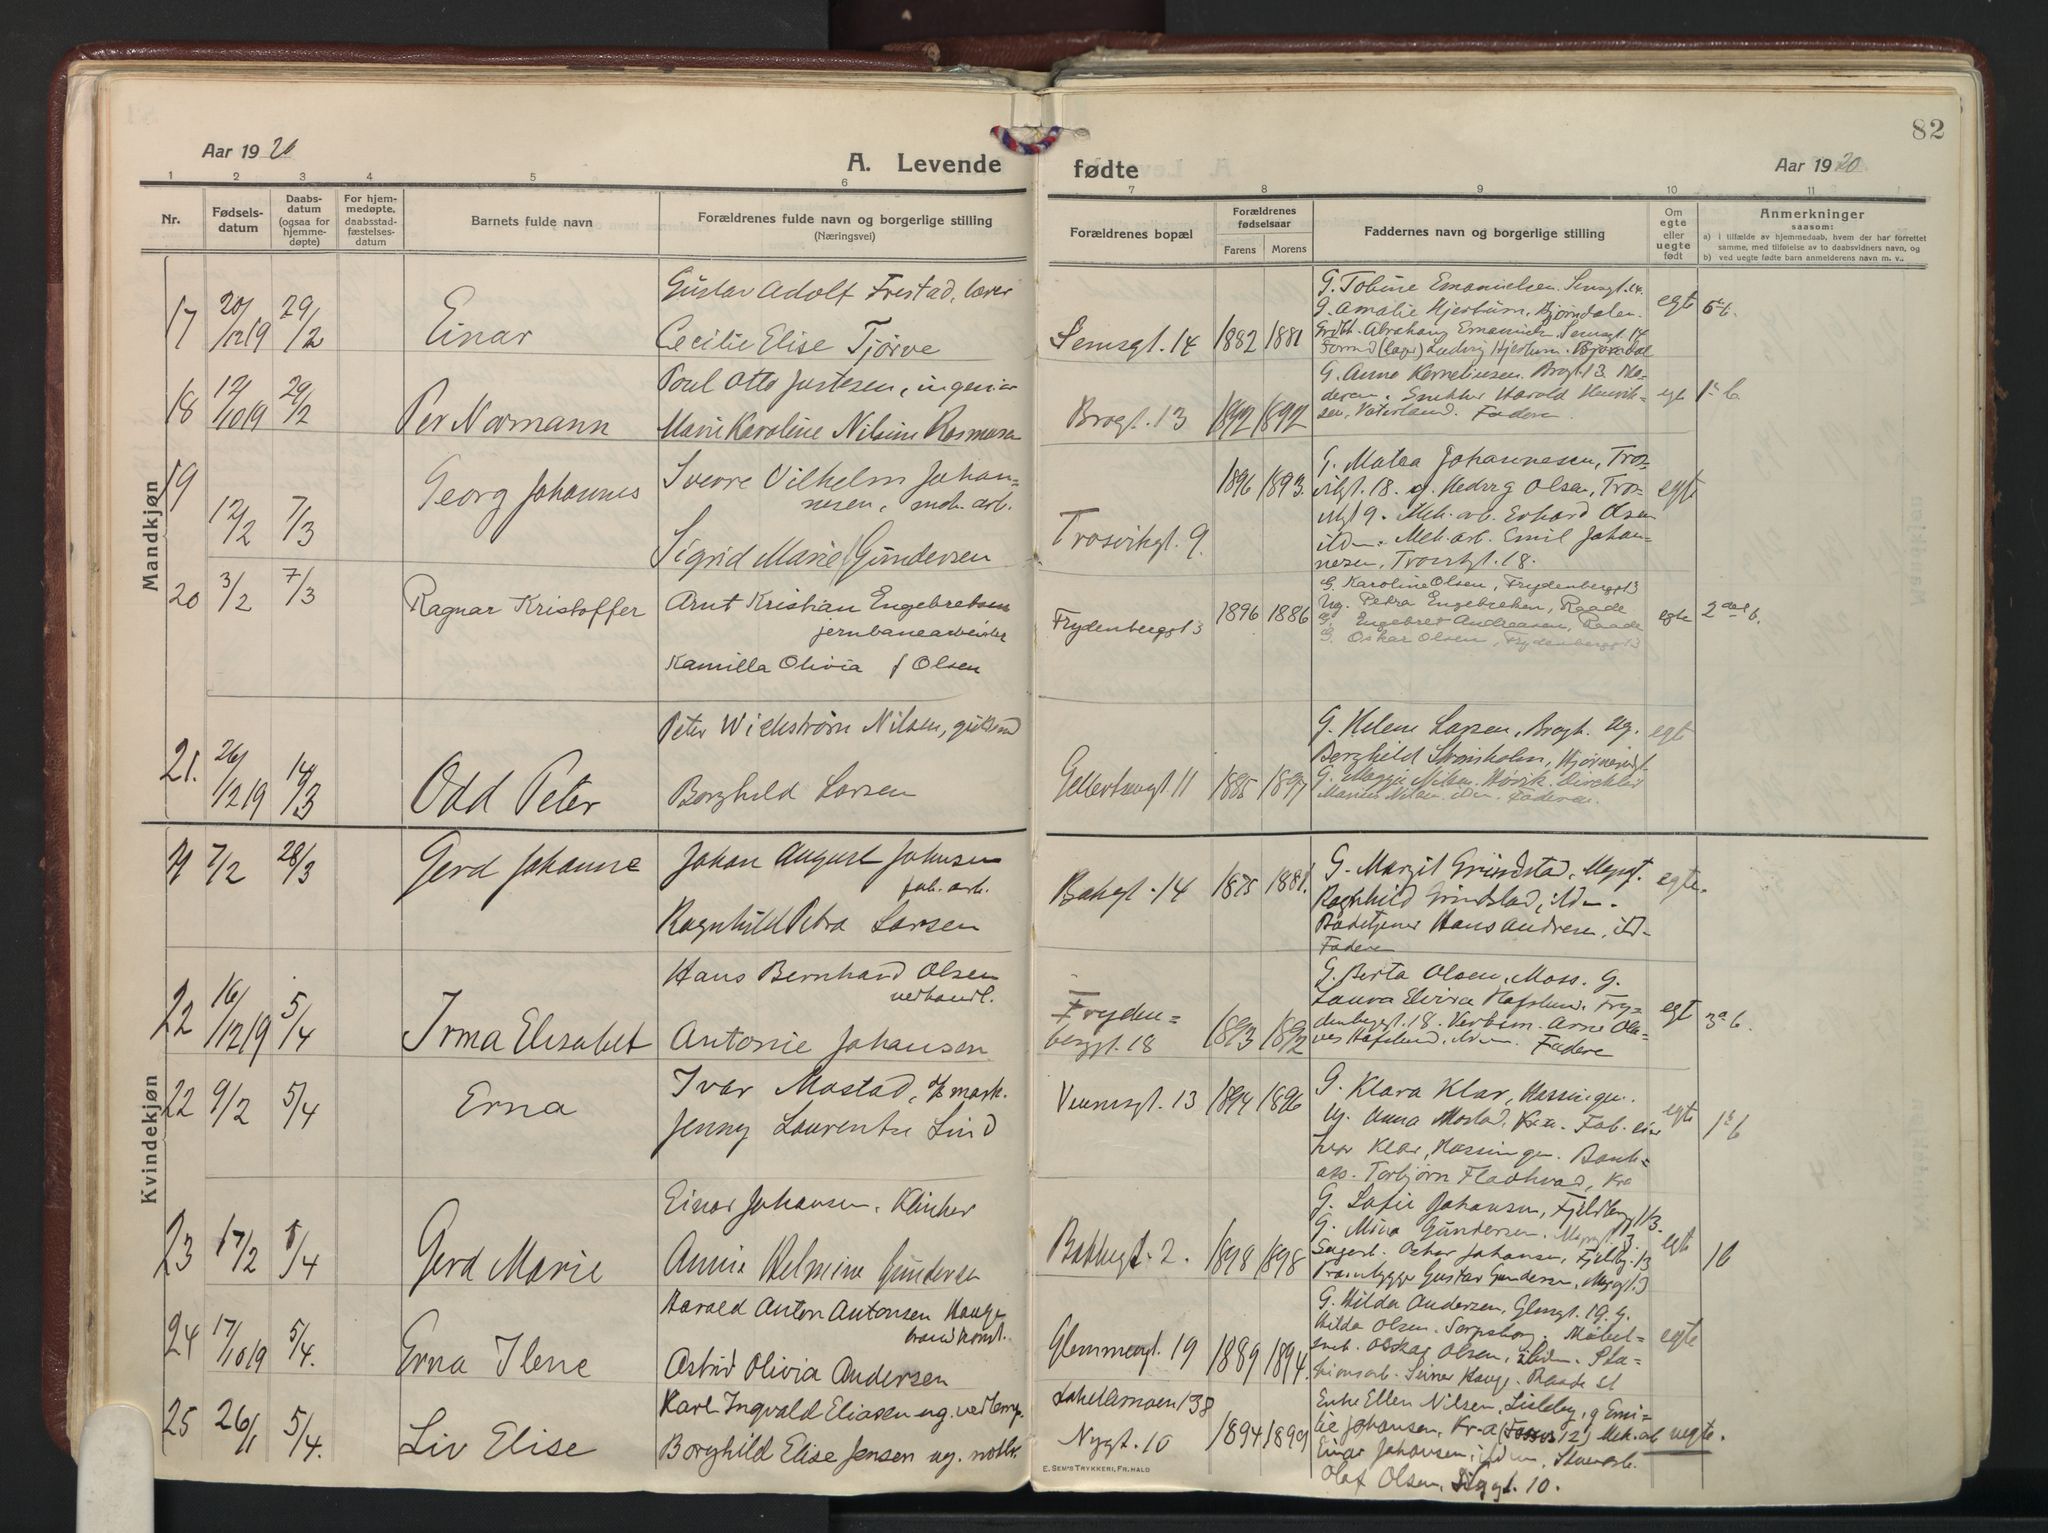 82
Aar 1920
A. Levende
fødte
Aar 1920
1 2 3 4 5 6 7 8 9 10 11
Nr.
Fødsels-
datum
Daabs-
datum
(ogsaa for
hjemme-
døpte)
For hjem-
medøpte,
daabsstad-
fæstelses-
datum
Barnets fulde navn
Forældrenes fulde navn og borgerlige stilling
(Næringsvei)
Forældrenes bopæl
Forældrenes
fødselsaar
Farens
Morens
Faddernes navn og borgerlige stilling
Om
egte
eller
uegte
født
Anmerkninger
saasom:
a) i tilfælde av hjemmedaab, hvem der har forrettet
samme, med tilføielse av to daabsvidners navn, og
b) ved uegte fødte barn anmelderens navn m. v..
Mandkjøn
17
20/1219
29/2
Einar
Gustav Adolf Frestad, lærer
Cecilie Elise Tjørve
Semsgt. 14
1882
1881
G. Tobine Emanielsen Semsgt. 14.
G. Amalie Hjertum, Bjørndalen.
egte
18
12/1019
29/2
Per Normann
Poul Otto Justesen, ingeniør
Marie Karoline Nilsine Rasmusen
Brogt. 13
1892
1892
G. Anna Korneliusen. Brogt 13. Mo-
deren. Snekker Harald Henrik-
sen, Vaterland. Fadere
egte
19
12/2
7/3
Georg Johannes
Sverre Vilhelm Johan-
nesen, mek. arb.
Sigrid Marie f Gundersen
Trosvikgt. 9.
1896
1893.
G. Matea Johannesen, Tros-
vikgt. 18. g. Hedvig Olsen, Tros-
vikgt 9. Mek. arb. Erhard Olsen
ildm. Mek. arb. Emil Johan-
nesen, Trosvkgt. 18.
egte
20
3/2
7/3
Ragnar Kristoffer
Arnt Kristian Engebretsen
jernbanearbeider
Kamilla Olivia f Olsen
Frydenbergsgt 3
1896
1886
G. Karoline Olsen, Frydenbergsgt 3
Ug. Petra Engebretsen, Raade
G. Engebret Andreasen, Raade
G. Oskar Olsen, Frydenbergsgt 3
egte
21.
26/1219
14/3
Odd Peter
Peter Wickstrøm Nilsen,
Borghild Larsen
Gellertsengt 11
1885
1897
G. Helene Larsen, Brogt. Ug.
Borghild
G. Maggie Nilsen. Høvik. Direktør
Marius Nilsen ildm. Faderen.
egte
Kvindekjøn
21
7/2
28/3
Gerd Johanne
Johan August Johnsen
fab. arb.
Ragnhild Petra Larsen
Bakegt. 14
1875
1881.
G. Margit Grindstad,
Ragnhild Grindstad, ildm.
Badetjener Hans Andresen, ild-
Fadere
egte.
22
16/1219
5/4
Irma Elisabet
Hans Bernhard Olsen
vedhandl.
Antonie Johansen
Fryden=
bergsgt. 18
1893
1892
G. Berta Olsen, Moss. G.
Laura Elvira Hafslund, Fry-
denbergsgt. 18. Verksm. Arne Ola-
ves Hafslund, ildm. Fadere
egte
22
9/2
5/4
Erna
Ivar Mostad,
Jenny Laurentse Lind
Veumsgt. 13
1894
1896
G. Klara Klar, Hassingen.
Ug. Anna Mostad, Fab. eier
Ivar Klar, Hassingen. Bank=
ass. Torbjørn Fladhvad, Kra
egte
23
17/2
5/4
Gerd Marie
Einar Johansen, Klinker
Annie Helmine Gundersen
Bakkegt. 2.
1898
1898
G. Sofie Johansen, Fjeldberg 1/3.
G. Mina Gundersen.
Sagarb. Oskar Johansen, Fjeldbg. 13
Prambygger Gustav Gundersen,
egte
24
17/1019
5/4.
Erna Ilene
Harald Anton Antonsen Hauge
brandkonst.
Astrid Olivia Andersen
Glemmengt. 19
1889
1894.
G. Hilda Andersen, Glemgt. 19. G.
Hilda Olsen. Sarpsborg. Møbel-
snk. Osskar Olsen, ildm. Sta-
tionsarb. Hauge. Raade St
egte
25
26/1
5/4.
Liv Elise
Karl Ingvald Eliasen ug.
Borghild Elise Jensen ug.
138
Nygt. 10
1894
1899
Enke Ellen Nilsen, Lisleby, g Emi-
lie Johansen, Kr-a 12) Mek. arb
Einar Johansen, ildm,
Olaf Olsen, Nygt. 10.
uegte.
E. SEM'S TRYKKERI, FR.HALD